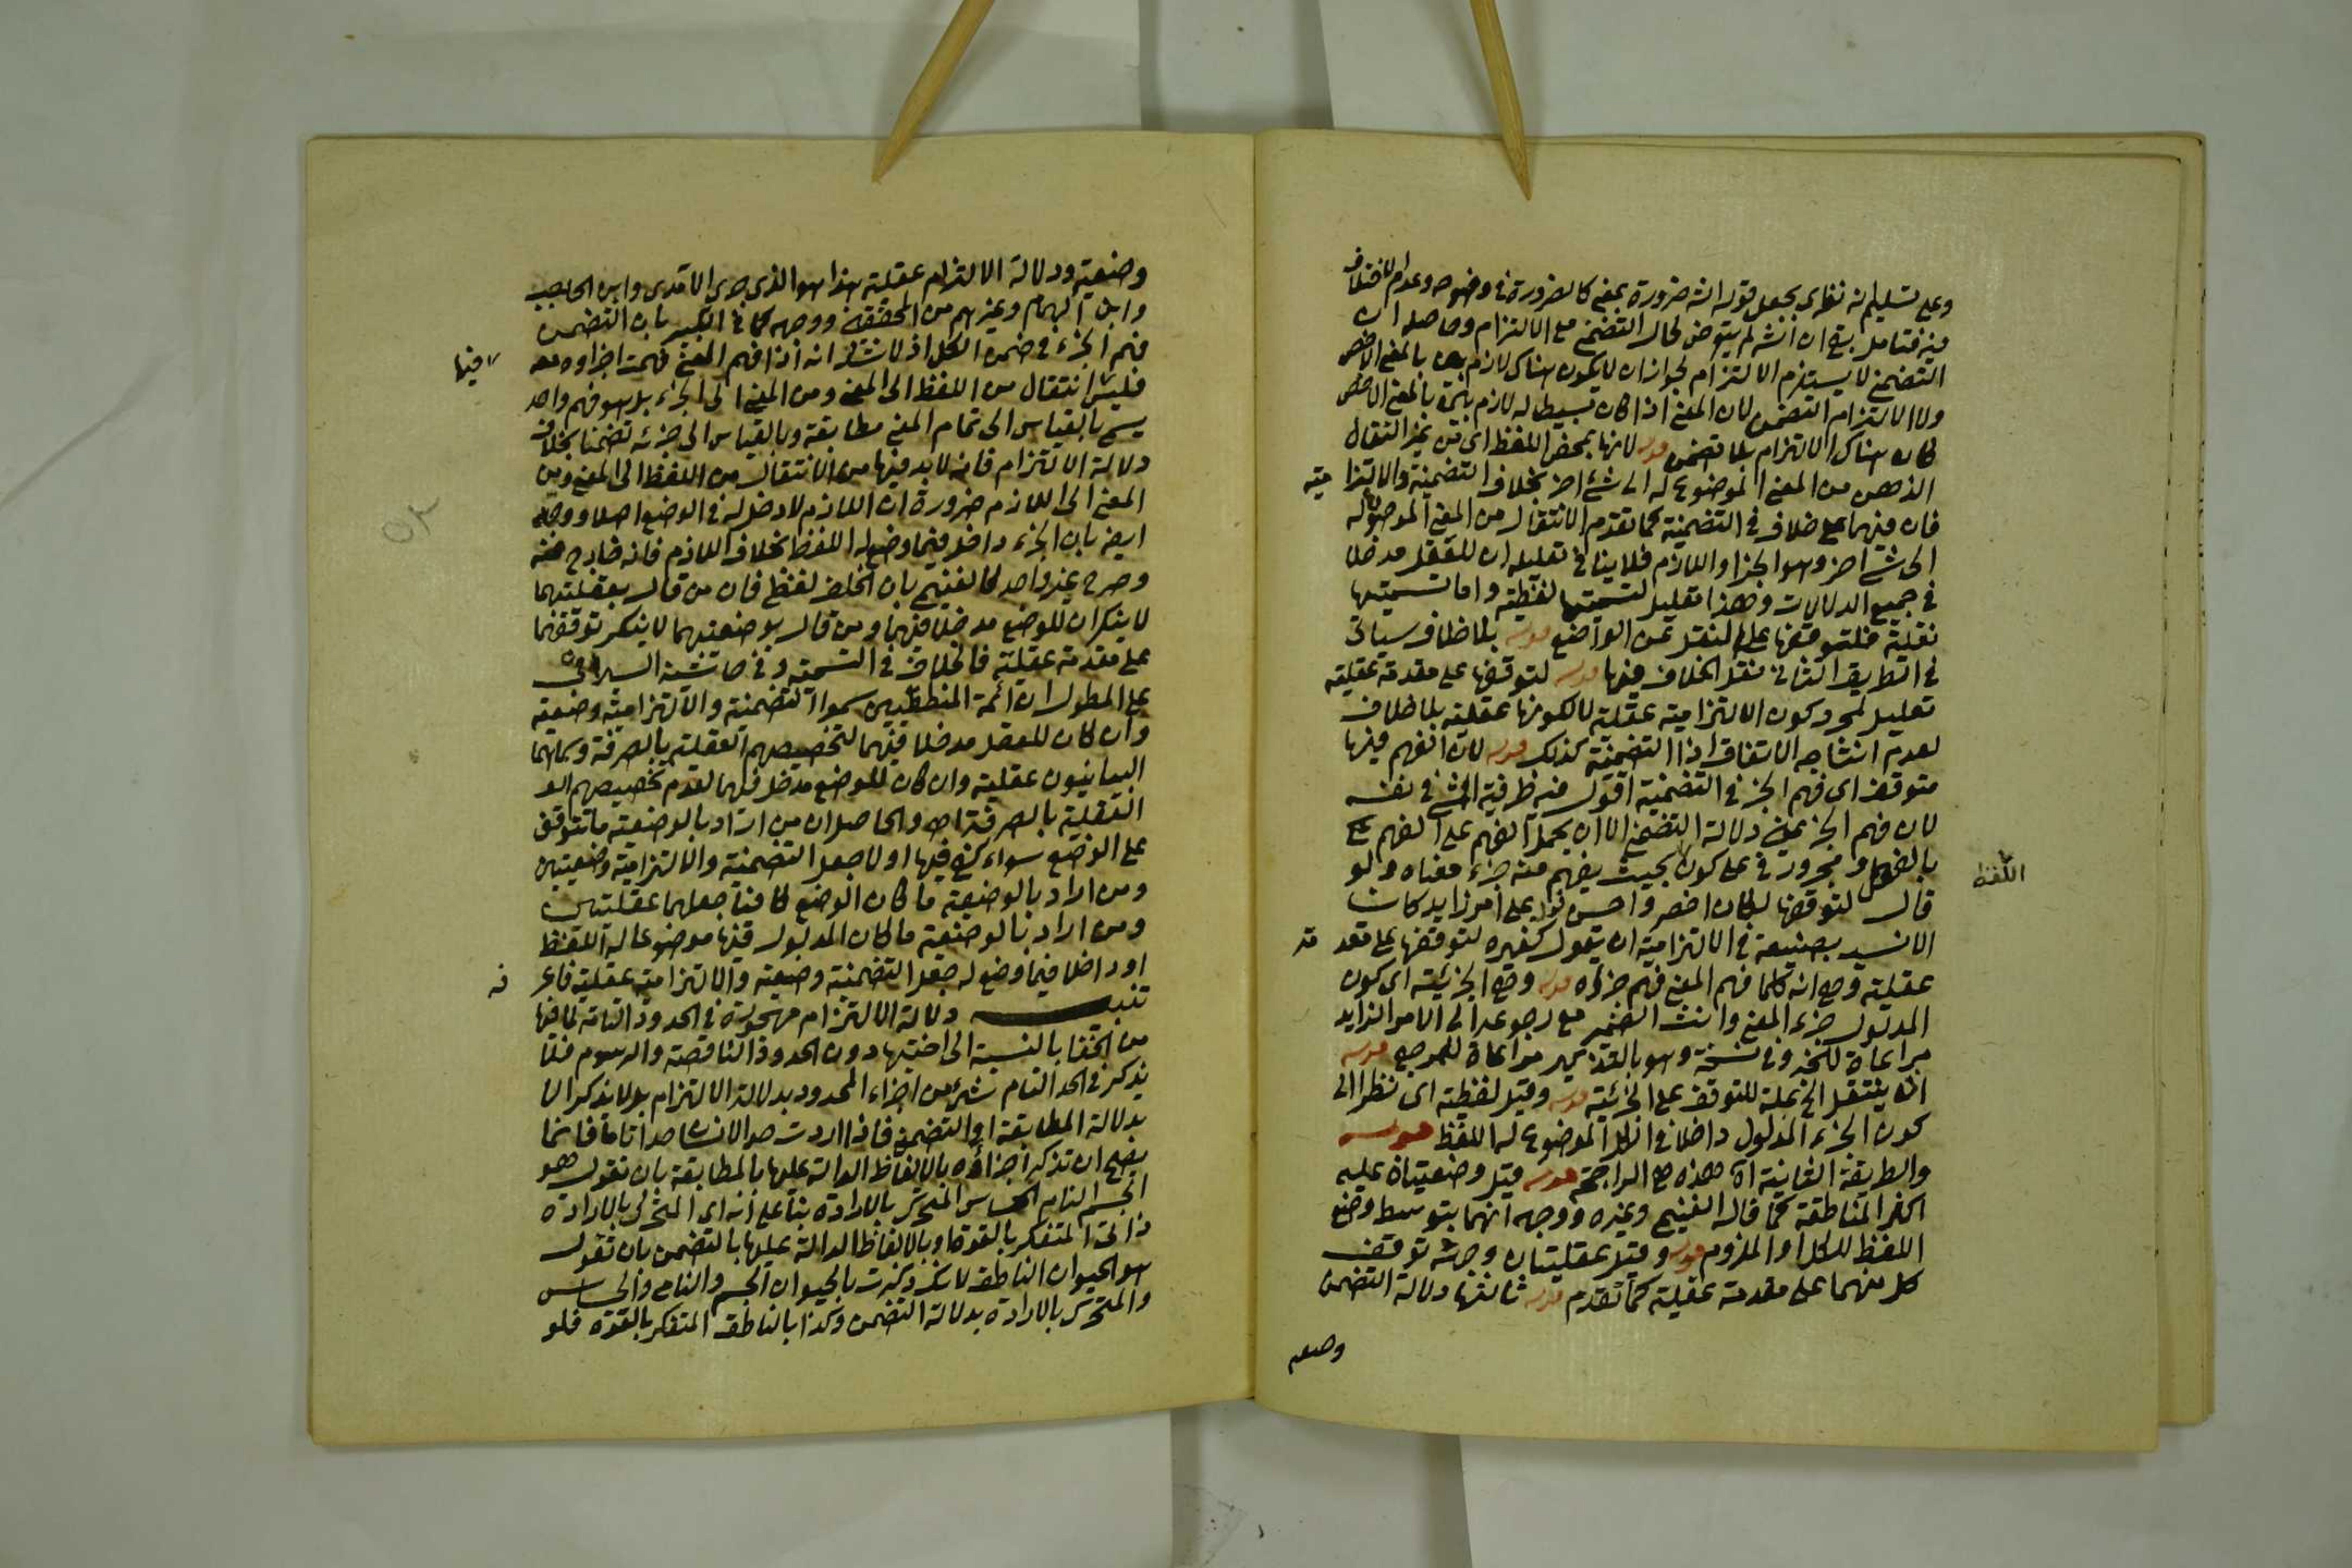 وعلى تسليم انه نظري يجعل قوله انه ضرورة بمعنى كالضرورة في وضوحه وعدم الاختلاف
فيه فتامل بقي ان الش لم يتعرض لحال التضمن مع الالتزام وحاصله ان
التضمن لا يستلزم الالتزام لجواز ان لا يكون هناك لازم بين بالمعنى الاخص
ولا الالتزام التضمن لان المعنى اذا كان بسيطا له لازم بين بالمعنى الاخص
كان هناك الالتزام بلا تضمن قوله لانها بمحض اللفظ اى من غير انتقال
الذهن من المعنى الموضوع له الى شئ اخر بخلاف التضمنية والالتزا مية
فان فيهما على خلاف في التضمنية كما تقدم الانتقال من المعنى الموضوع له
الى شئ اخر وهو الجزء او اللازم فلا ينافي تعليله ان للعقل مدخلا
في جميع الدلالات وهذا تعليل لتسميتها لفظية واما تسميتها
نقلية فلتوقفها على النقل عن الواضع قوله بلا خلاف سياتى
في الطريق الثانى نقل الخلاف فيها قوله لتوقفها على مقدمة عقلية
تعليل لمجرد كون الالتزامية عقلية لا لكونها عقلية بلا خلاف
لعدم انتاجه الاتفاق اذ التضمنية كذلك قوله لان الفهم فيها
متوقف اى فهم الجزء في التضمنية اقول فيه ظرفية الشئ في نفسه
لان فهم الجزء عين دلالة التضمن الا ان يحمل الفهم على الفهم
بالفعل ومجرور في على كون اللفظ بحيث يفهم منه جزء معناه ولو
قال لتوقفها لكان اخصر واحسن قوله على امر زايد كان
الانسب بصنيعه في الالتزامية ان يقول كغيره لتوقفها على مقد مة
عقلية وهي انه كلما فهم المعنى فهم جزؤه قوله وهي الجزئية اى كون
المدلول جزء المعنى وانث الضمير مع رجوعه الى الامر الزايد
مراعاة للخبر وفي نسخة وهو بالتذكير مراعاة للمرجع قوله
انه ينتقل الخ علة للتوقف على الجزئية قوله وقيل لفظية اى نظرا الى
كون الجزء المدلول داخلا في الكل الموضوع له اللفظ قوله
والطريقة الثانية اه هذه هي الراجحة قوله قيل وضعيتان عليه
اكثر المناطقة كما قاله الغنيمى وغيره ووجهه انهما بتوسط وضع
اللفظ للكل او الملزوم قوله وقيل عقليتان وجهه توقف
كل منهما على مقدمة عقلية كما تقدم قوله ثالثها دلالة التضمن
وضعيه
وضعية ودلالة الالتزام عقلية هذا هو الذى جرى الآمدى وابن الحاجب
وابن الهمام وغيرهم من المحققين ووجهه كما في الكبير بان التضمن
فهم الجزء في ضمن الكل اذ لا شك انه اذا فهم المعنى فهمت اجزاوه معه
فليس فيها انتقال من اللفظ الى المعنى ومن المعنى الى الجزء بل هو فهم واحد
يسمى بالقياس الى تمام المعنى مطابقة وبالقياس الى جزئه تضمنا بخلاف
دلالة الالتزام فانه لا بد فيها من الانتقال من اللفظ الى المعنى ومن
المعنى الى اللازم ضرورة ان اللازم لا دخل له في الوضع اصلا ووجه
ايضا بان الجزء داخل فيما وضع له اللفظ بخلاف اللازم فانه خارج عنه
وصرح غير واحد كالغنيمى بان الخلف لفظى فان من قال بعقليتهما
لا ينكر ان للوضع مدخلا فيهما ومن قال بوضعيتهما لا ينكر توقفهما
على مقدمة عقلية فالخلاف في التسمية وفي حاشية السيرامى
على المطول ان ائمة المنطقيين سموا التضمنية والالتزامية وضعية
وان كان للعقل مدخلا فيهما لتخصيصهم العقلية بالصرفة وسماهما
البيانيون عقلية وان كان للوضع مدخل فيهما لعدم تخصيصهم الد
العقلية بالصرفة اه والحاصل ان من اراد بالوضعية ما تتوقف
على الوضع سواء كفى فيها او لا جعل التضمنية والالتزامية وضعيتين
ومن اراد بالوضعية ما كان الوضع كافيا جعلهما عقليتين
ومن اراد بالوضعية ما كان المدلول فيها موضوعا له اللفظ
او داخلا فيما وضع له جعل التضمنية وضعية والالتزامية عقلية فاعر فه
تنبيه دلالة الالتزام مهجورة في الحدود التامة لما فيها
من الخفا بالنسبة الى اختيها دون الحدود الناقصة والرسوم فلا
يذكر في الحد التام شئ من اجزاء المحدود بدلالة الالتزام بل لا يذكر الا
بدلالة المطابقة او التضمن فاذا اردت حد الانسان حدا تاما فانما
يصح ان تذكر اجزاؤه بالالفاظ الدالة عليها بالمطابقة بان تقول هو
الجسم النامى الحساس المتحرك بالارادة بناء على انه اى المتحرك بالارادة
ذاتى المتفكر بالقوة او بالالفاظ الدالة عليها بالتضمن بان تقول
هو الحيوان الناطق لانك ذكرت بالحيوان الجسم والنامى والحساس
والمتحرك بالارادة بدلالة التضمن وكذا بالناطق المتفكر بالقوة فلو